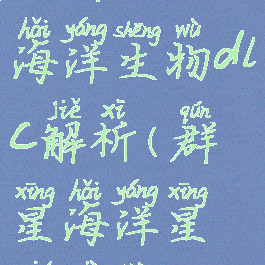 hǎi yáng shēng wù
海洋生物dl
jiě xī qún
c解析(群
xīng hǎi yáng xīng
星海洋星